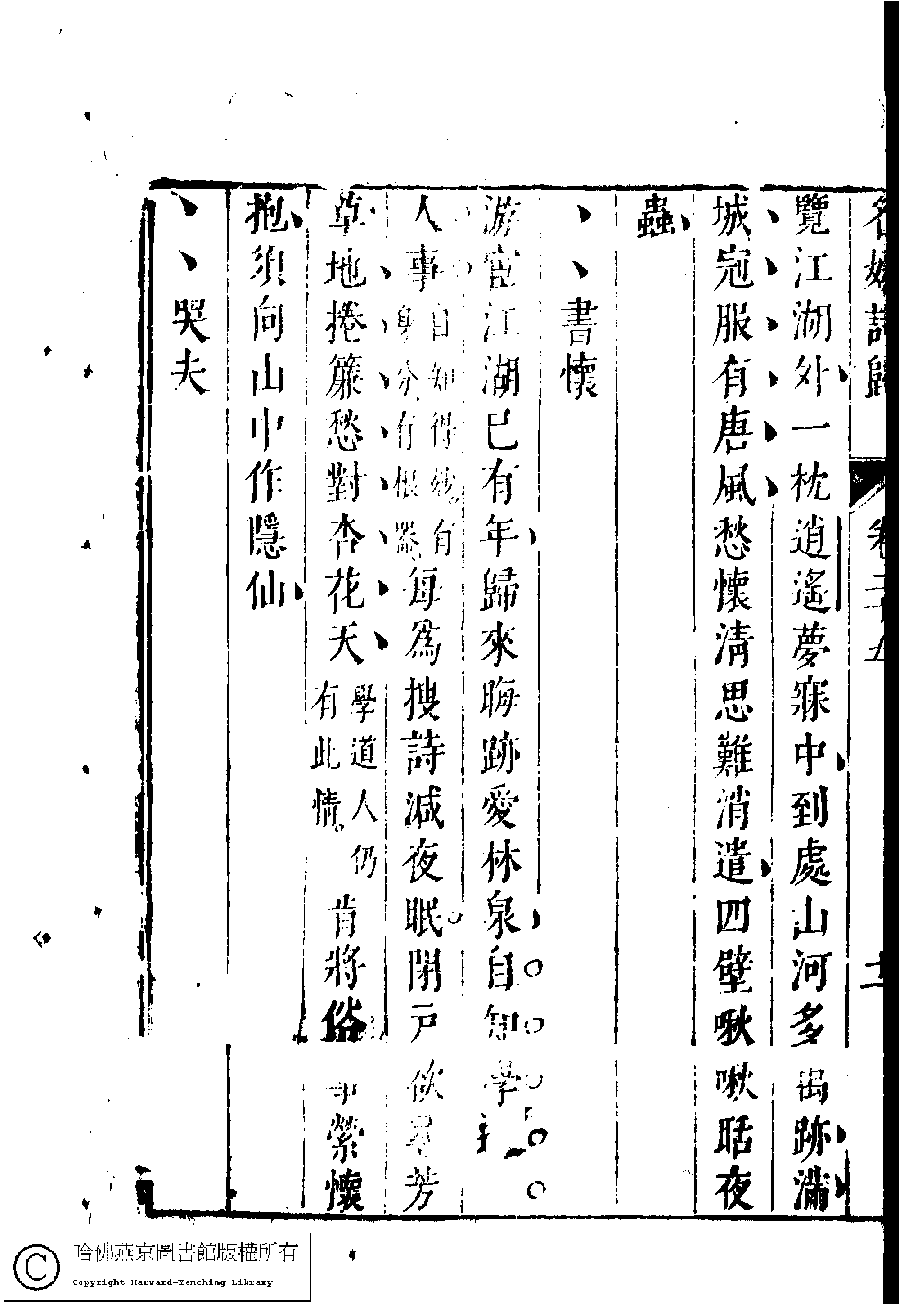 名媛詩歸
卷三十五
十二
覽江湖外一枕逍遙夢寐中到處山河多禹跡滿
城冠服有唐風愁懷清思難消遣四壁啾啾聒夜
蟲
書懷
游宦江湖已有年歸來晦跡愛林泉自知學
人事自知得妙有身分有根器每爲搜詩減夜眠閉戶欲尋芳
草地捲簾愁對杏花天學道人仍有此情肯將俗事縈懷
抱須向山中作隱仙
哭夫
哈佛燕京圖書館版權所有
Copyright Harvard-Yenching Library